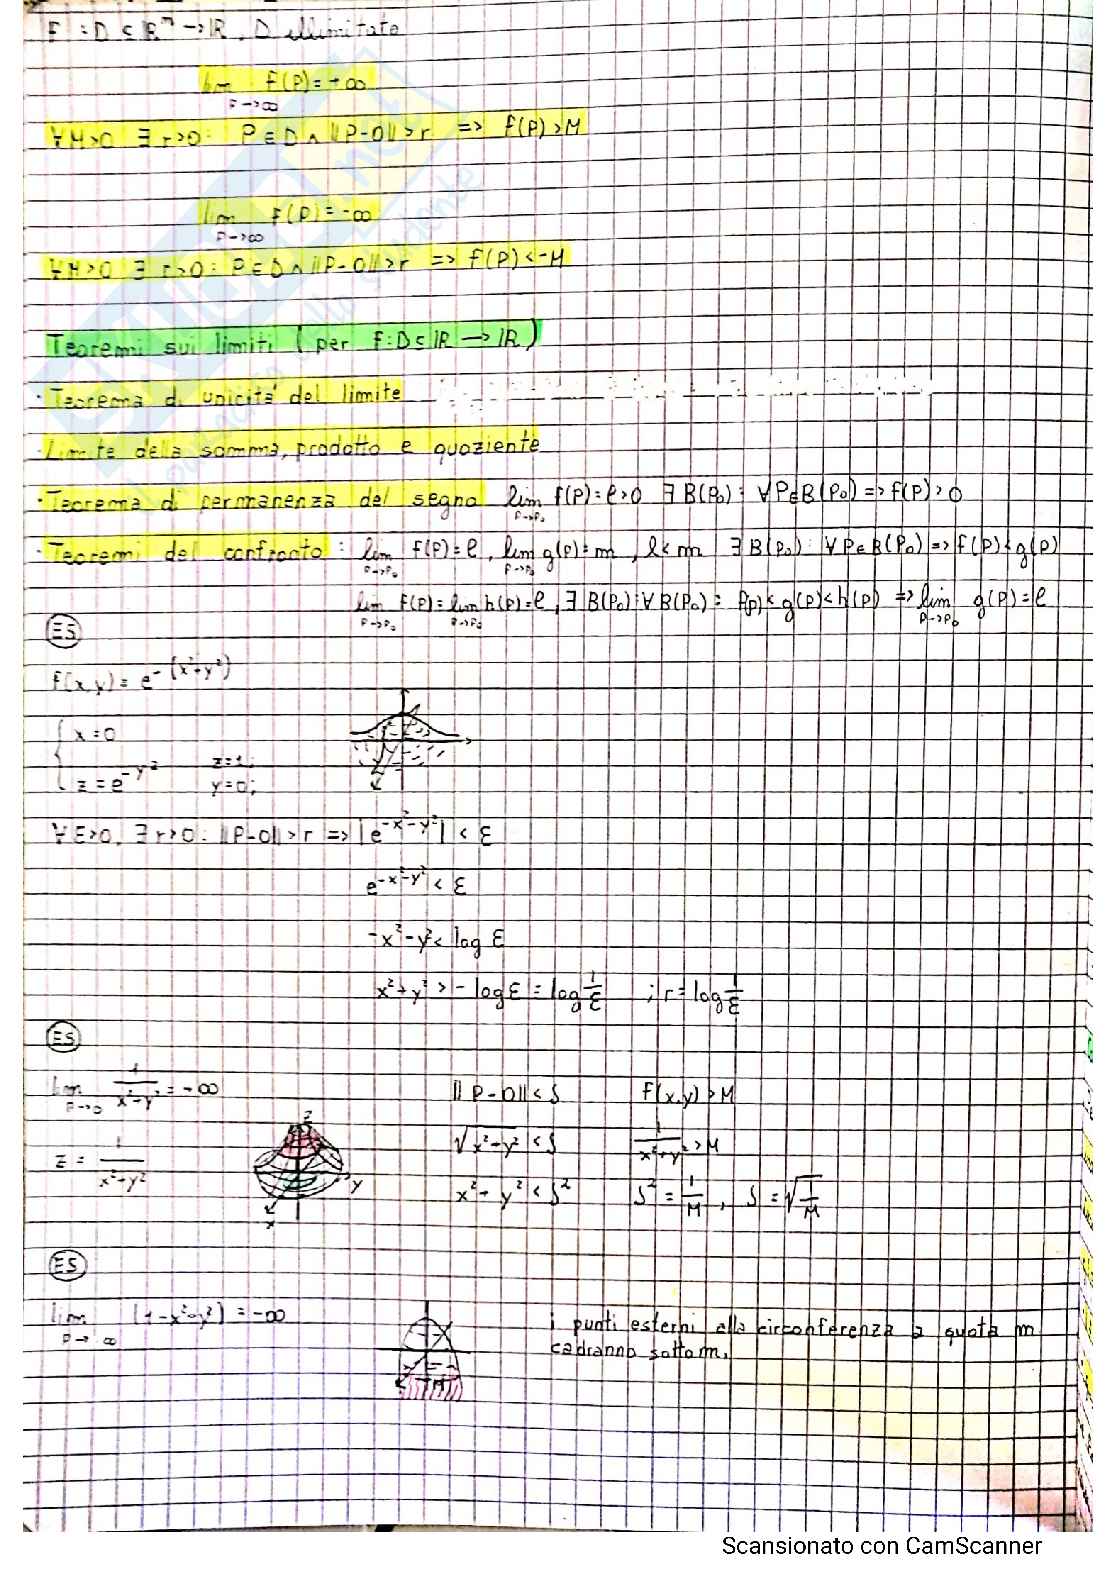 F : D ⊆ ℝⁿ → ℝ, D illimitato
lim f(P) = +∞
P→∞
∀M>0 ∃ r>0 : P ∈ D ∧ ||P-O|| > r => f(P) > M
lim f(P) = -∞
P→∞
∀M>0 ∃ r>0 : P ∈ D ∧ ||P-O|| > r => f(P) < -M
Teoremi sui limiti ( per f: D ⊆ ℝ → ℝ )
· Teorema di unicità del limite
· Limite della somma, prodotto e quoziente
· Teorema di permanenza del segno lim f(P) = ℓ > 0 ∃ B(P₀) : ∀P∈B(P₀) => f(P) > 0
P→P₀
· Teoremi del confronto : lim f(P) = ℓ, lim g(P) = m, ℓ < m ∃ B(P₀) : ∀P∈B(P₀) => f(P) < g(P)
P→P₀ P→P₀
lim f(P) = lim h(P) = ℓ, ∃ B(P₀) : ∀ B(P₀) : f(P) < g(P) < h(P) => lim g(P) = ℓ
P→P₀ P→P₀ P→P₀
ES
f(x,y) = e^-(x²+y²)
{ x = 0
z = e^-y² z=1;
y=0;
∀ε>0, ∃ r>0 : ||P-O|| > r => |e^-x²-y²| < ε
e^-x²-y² < ε
-x²-y² < log ε
x²+y² > -log ε = log 1/ε ; r = log 1/ε
ES
lim 1/(x²+y²) = -∞ ||P-O|| < δ f(x,y) > M
P→0
z = 1/(x²+y²) √(x²+y²) < δ 1/(x²+y²) > M
x²+y² < δ² δ² = 1/M, δ = √(1/M)
z
y
x
ES
lim (1-x²-y²) = -∞ i punti esterni alla circonferenza a quota m
P→∞ cadranno sotto m.
Scansionato con CamScanner